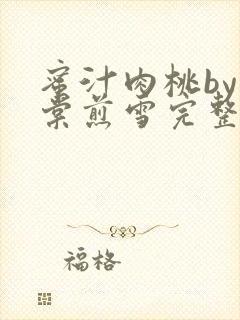 蜜汁肉桃by
棠煎雪完整
福格